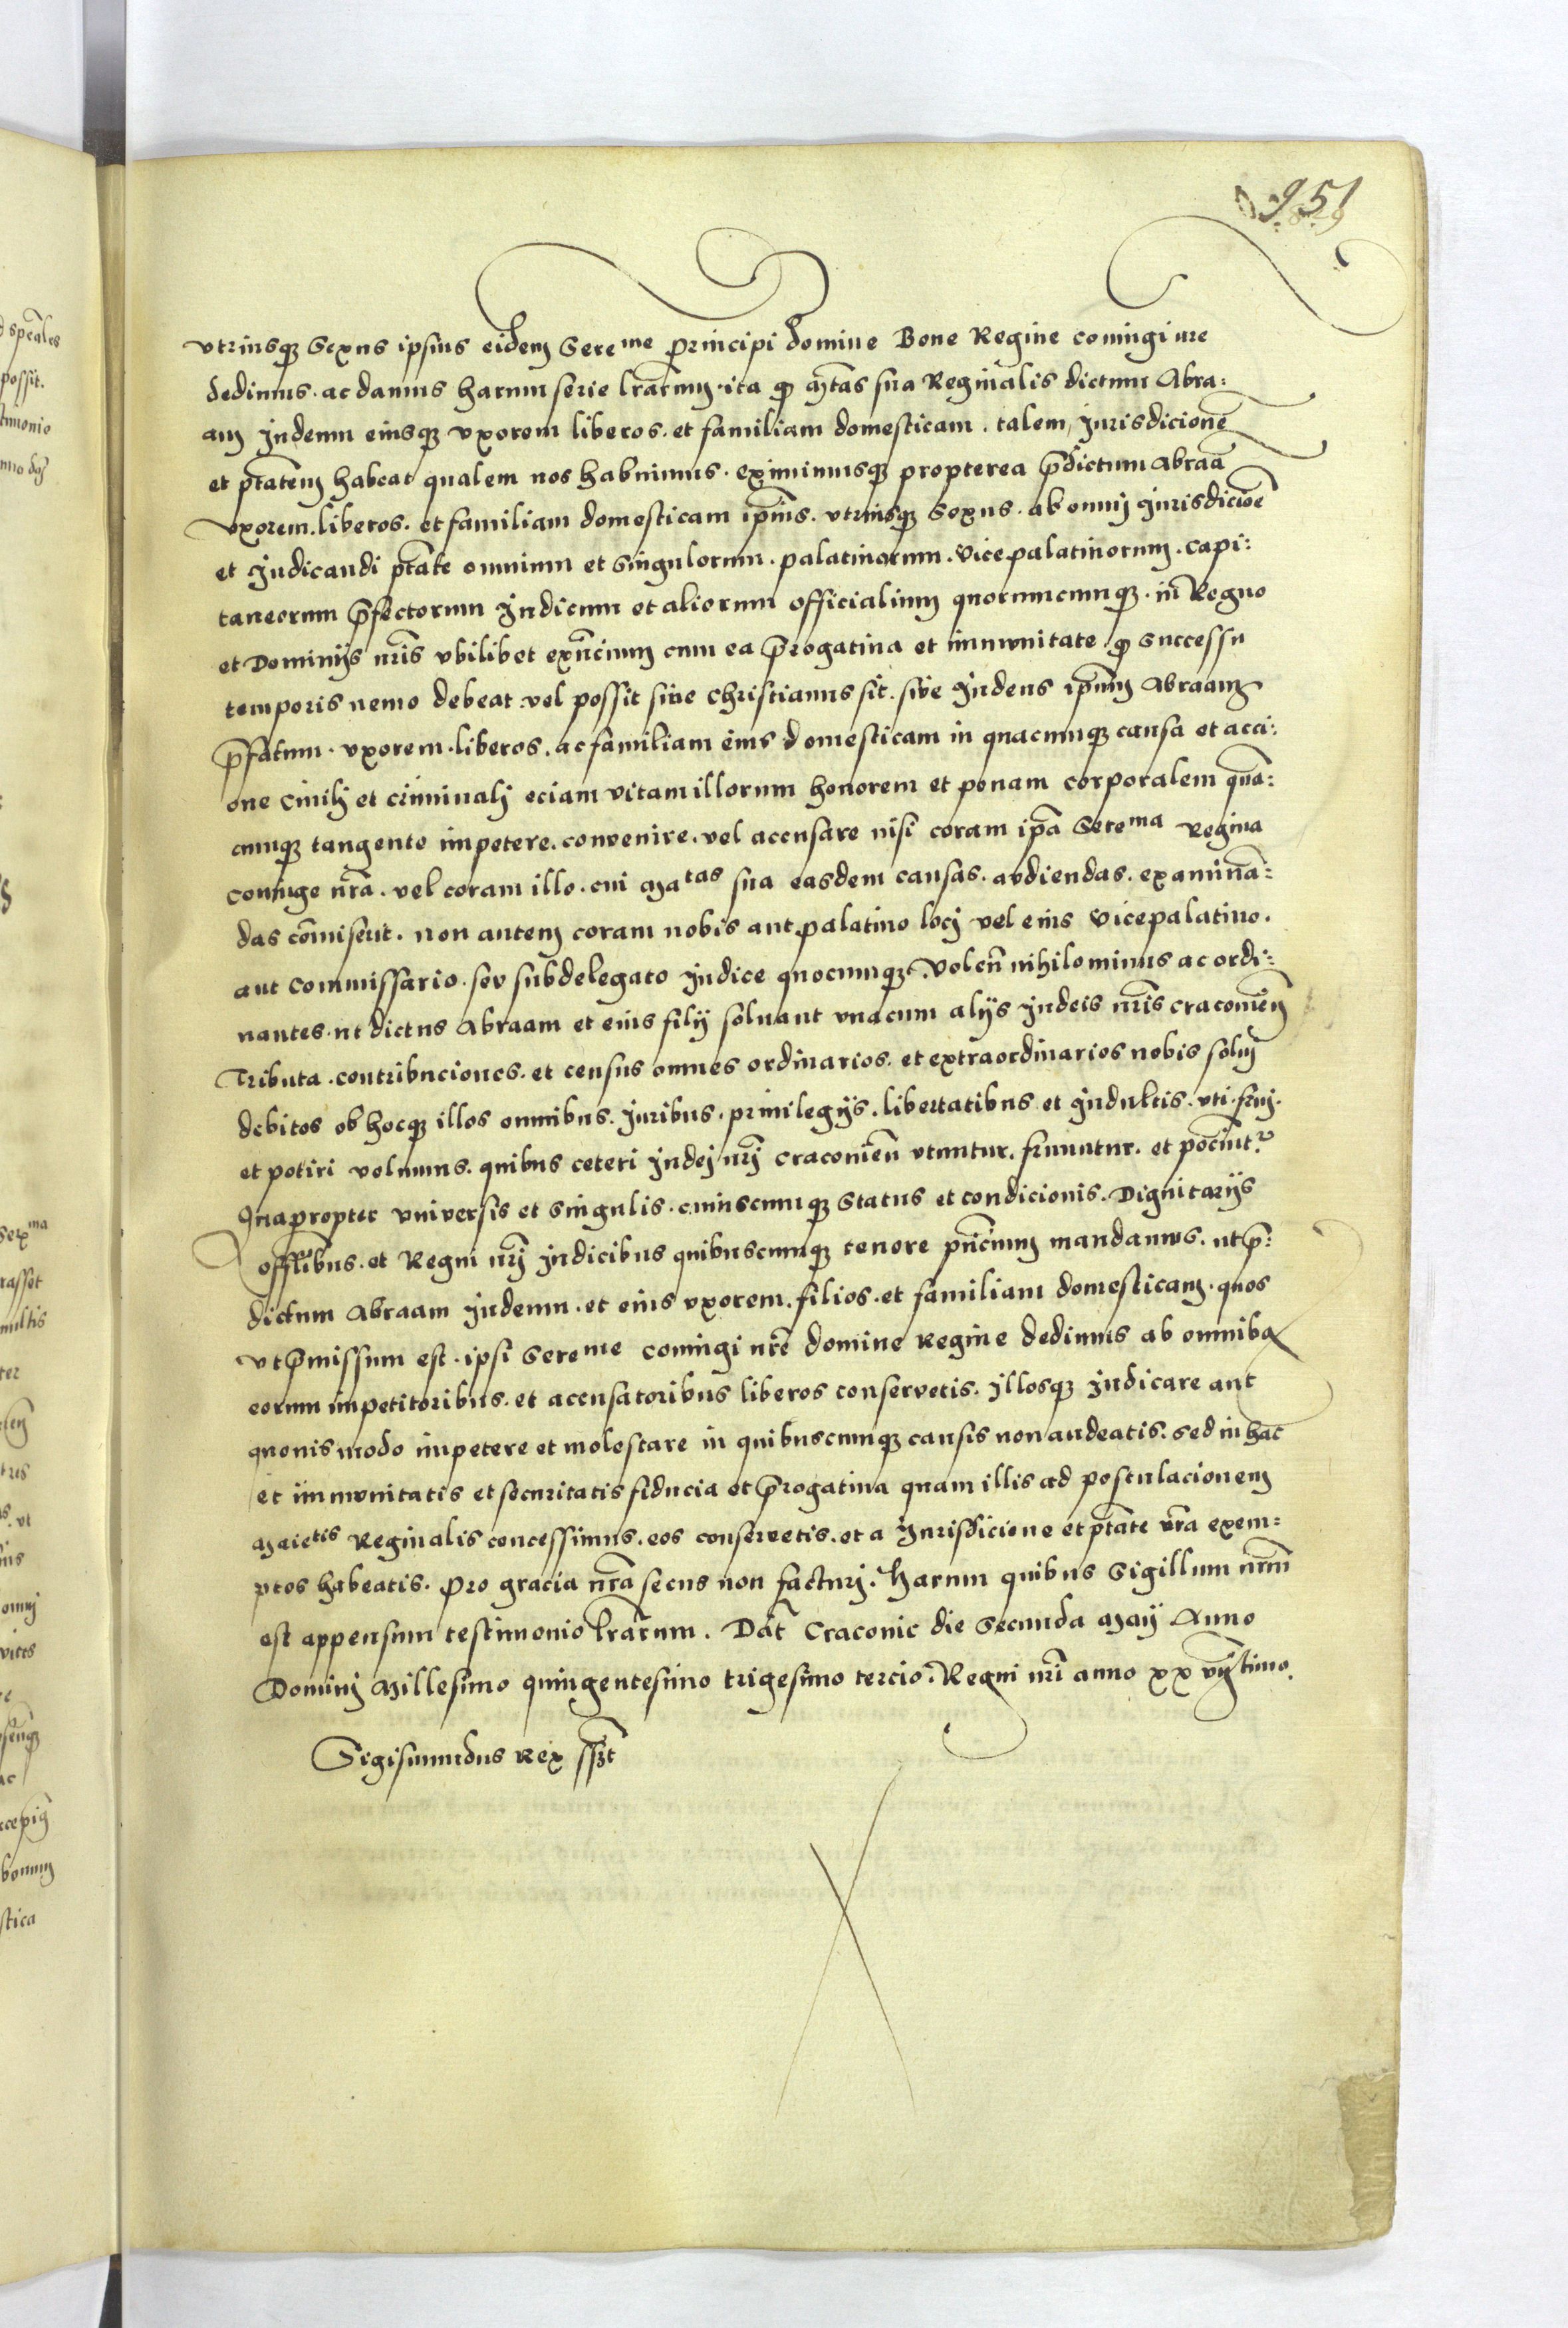 951
829
vtriusq3 Sexus ipsius eidem Sereme Principi domine Bone Regine coniugi nre
dedimus. ac damus harum serie lrarum. ita q mtas sua Reginalis dictum Abra:
am Judeum eiusq3 vxorem liberos. et familiam domesticam. talem Jurisdicionē
et ptatem habeat qualem nos habuimus. eximimusq3 propterea p̄dictum Abraā
vxorem. liberos. et familiam domesticam ip̄ius. vtriusq3 Sexus. ab omni Jurisdicioē
et Judicandi ptate omnium et Singulorum. palatinorum. Vicepalatinorum. capi:
taneorum p̄fectorum Judicum et aliorum officialium quorumcumq3. in Regno
et Dominijs nr̄is vbilibet exn̄cium cum ea p̄rogatiua et immunitate q Successu
temporis nemo debeat vel possit siue Christianus sit. siue Judeus ip̄um Abraam
p̄fatum. vxorem. liberos. ac familiam eius domesticam in quacumq3 causa et acci:
one Ciuilj et criminalj eciam vitam illorum honorem et penam corporalem quā:
cumq3 tangente impetere. convenire. vel accusare nisi coram ip̄a Serema Regina
coniuge nr̄a. vel coram illo. cui Matas sua easdem causas. avdiendas. examinā:
das com̄iserit. non autem coram nobis aut palatino locj vel eius Vicepalatino.
aut Commissario. sev subdelegato Judice quocumq3. Volen̄ nihilominus ac ordi:
nantes. ut dictus Abraam et eius filij soluant vnacum alijs Judeis nr̄is cracouien̄
Tributa. contribuciones. et census omnes ordinarios. et extraordinarios nobis soluj
debitos ob hocq3 illos omnibus. Juribus. priuilegijs. libertatibus et Jndultis. vti. frui.
et potiri volumus. quibus ceteri Judej nrj cracouien̄ vtuntur. fruuntur. et pociunt̄r
Quapropter vniversis et singulis. cuiuscumq3 Status et condicionis. Dignitarijs
offlibus. et Regni nrj Judicibus quibuscumq3 tenore pn̄cium mandamus. ut p̄:
dictum Abraam Judeum. et eius vxorem. filios. et familiam domesticam. quos
vt p̄missum est. ipsi Sereme coniugi nr̄e domine Regine dedimus ab omnib9
eorum impetitoribus. et accusatoribus liberos conservetis. Jllosq3 Judicare aut
quouismodo impetere et molestare in quibuscumq3 causis non audeatis. Sed in hac
et immunitatis et securitatis fiducia et p̄rogatiua quam illis ad postulacionem
Maietis Reginalis concessimus. eos conservetis. et a Jurisdicione et ptate vr̄a exem:
ptos habeatis. pro gracia nr̄a secus non facturj. Harum quibus Sigillum nr̄um
est appensum testimonio lrarum. Dat̄ Cracouie die Secunda Maij Anno
Dominj Millesimo quingentesimo trigesimo tercio. Regni nrj anno xxvijtimo.
Sigismundus Rex sszt